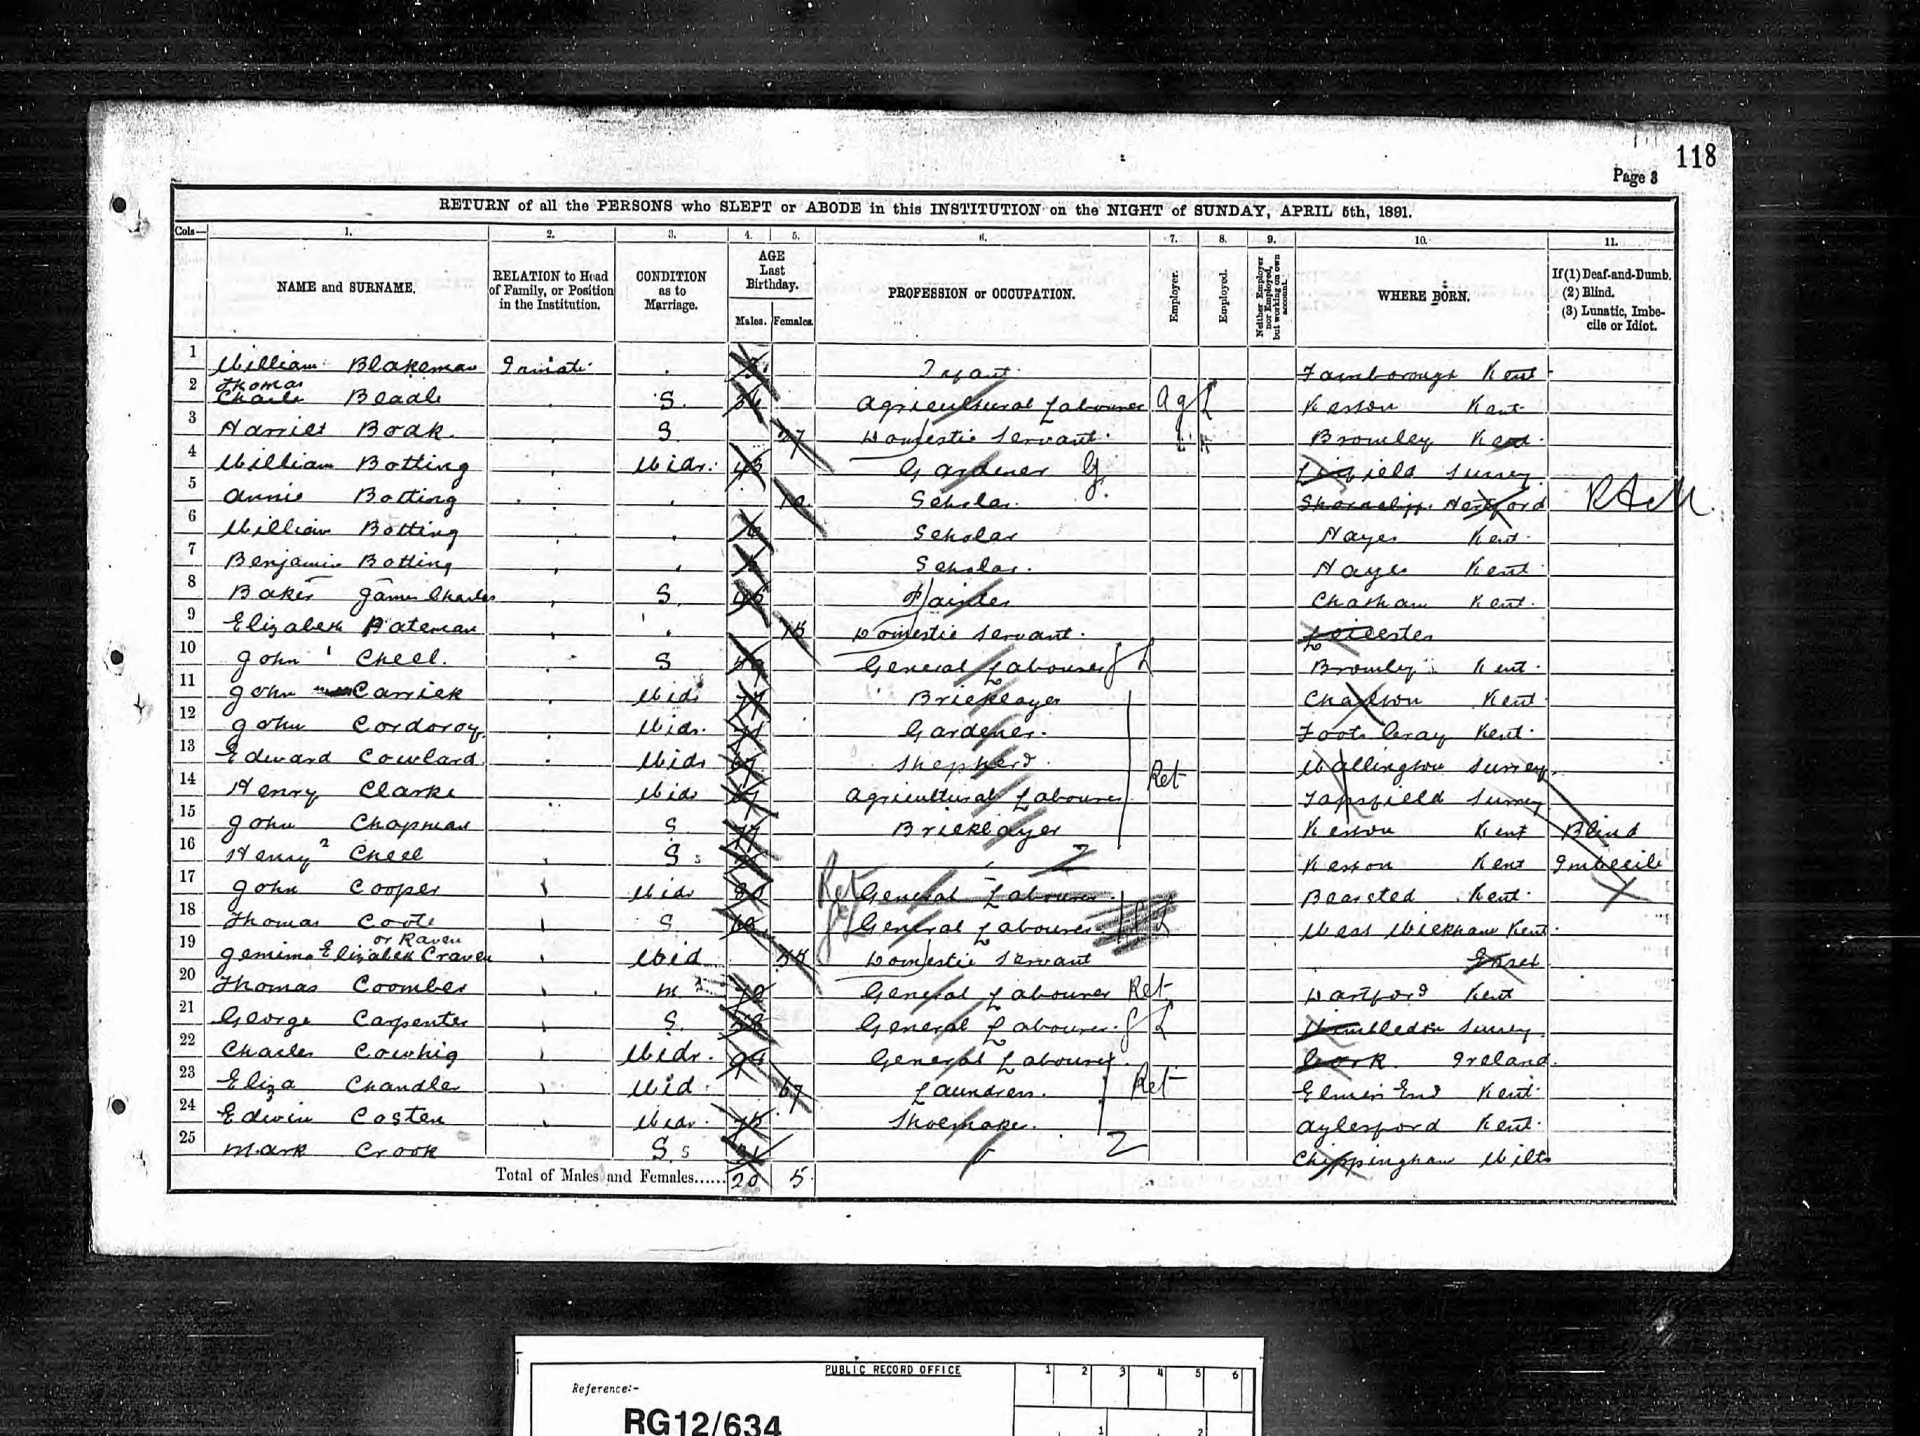 118
Page 3
RETURN of all the PERSONS who SLEPT or ABODE in this INSTITUTION on the NIGHT of SUNDAY, APRIL 5th, 1891.
Cols— 1. 2. 3. 4. 5. 6. 7. 8. 9. 10. 11.
NAME and SURNAME. RELATION to Head of Family, or Position in the Institution. CONDITION as to Marriage. AGE Last Birthday. Males. Females. PROFESSION or OCCUPATION. Employer. Employed. Neither Employer nor Employed, but working on own account. WHERE BORN. If (1) Deaf-and-Dumb. (2) Blind. (3) Lunatic, Imbecile or Idiot.
1 William Blakeman Inmate Infant Farnborough Kent
2 Thomas Charles Beadle S. Agricultural Labourer Ag L Keston Kent
3 Harriet Boak S 27 Domestic Servant Bromley Kent
4 William Botting Widr. 43 Gardener G Surrey
5 Annie Botting 10 Scholar Shorncliff Hertford
6 William Botting Scholar Hayes Kent
7 Benjamin Botting Scholar Hayes Kent
8 Baker James Charles S. Painter Chatham Kent
9 Elizabeth Bateman 15 Domestic Servant Leicester
10 John 1 Cheel S General Labourer G L Bromley Kent
11 John Carrick Widr 77 Bricklayer Charlton Kent
12 John Cordoroy Widr. Gardener Foots Cray Kent
13 Edward Cowlard Widr Shepherd Wallington Surrey
14 Henry Clarke Widr Agricultural Labourer Ret Surrey
15 John Chapman S 77 Bricklayer Keston Kent Blind
16 Henry 2 Cheel S s Keston Kent Imbecile
17 John Cooper Widr 80 Ret General Labourer Bearsted Kent
18 Thomas Coote S General Labourer G L West Wickham Kent
19 Jemima Elizabeth Craven or Raven Wid Domestic Servant
20 Thomas Coomber M 70 General Labourer Ret Dartford Kent
21 George Carpenter S. General Labourer G L Wimbledon Surrey
22 Charles Cowhig Widr. General Labourer Cork Ireland
23 Eliza Chandler Wid. 67 Laundress Ret Elmers End Kent
24 Edwin Costen Widr. 75 Shoemaker Aylesford Kent
25 Mark Crook S s Chippingham Wilts
Total of Males and Females...... 20 5
PUBLIC RECORD OFFICE 1 2 3 4 5 6
Reference:-
RG12/634
1 2